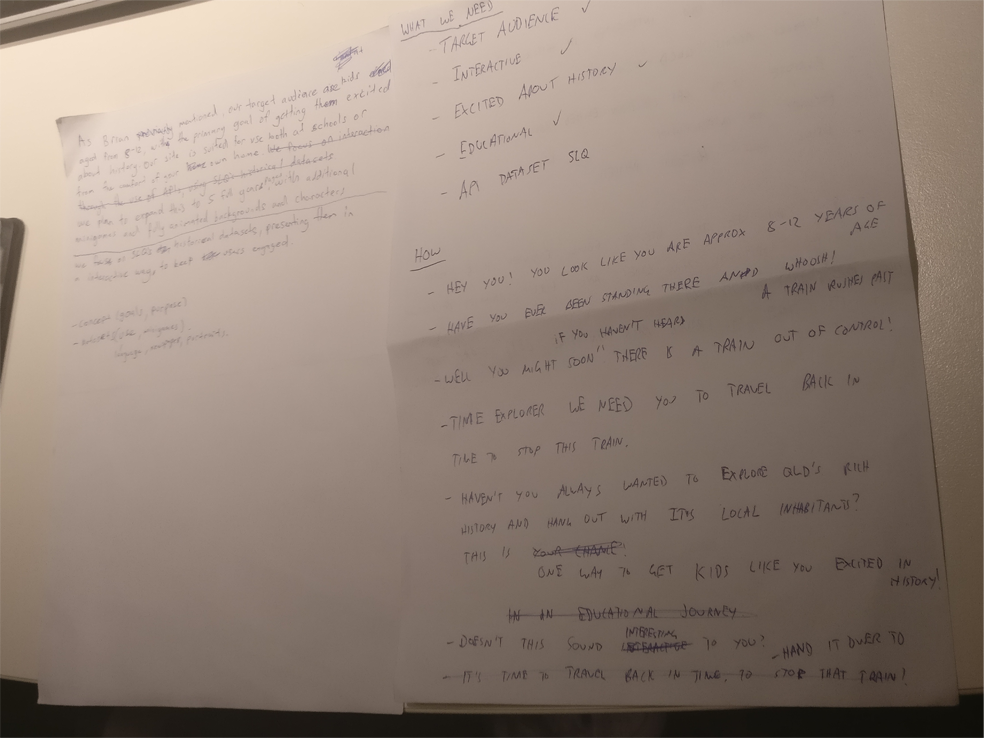 As Brian mentioned, our target audience are kids
aged from 8-12, with the primary goal of getting them excited
about history. Our site is suited for use both at schools or
from the comfort of your own home. We focus on interaction
through the use of
we plan to expand this to 5 full games, with additional
minigames and fully animated backgrounds and characters
we focus on SLQs historical datasets, presenting them in
interactive ways to keep users engaged.
- concept (goals, purpose).
WHAT WE NEED
- TARGET AUDIENCE ✓
- INTERACTIVE ✓
- EXCITED ABOUT HISTORY ✓
- EDUCATIONAL ✓
- API DATASET SLQ
HOW
- HEY YOU! YOU LOOK LIKE YOU ARE APPROX 8-12 YEARS OF
AGE
- HAVE YOU EVER BEEN STANDING THERE AND WHOOSH!
A TRAIN RUSHES PAST
IF YOU HAVEN'T HEARD
- WELL YOU MIGHT SOON" THERE IS A TRAIN OUT OF CONTROL!
- TIME EXPLORER WE NEED YOU TO TRAVEL BACK IN
TIME TO STOP THIS TRAIN.
- HAVEN'T YOU ALWAYS WANTED TO EXPLORE QLD'S RICH
HISTORY AND HANG OUT WITH ITS LOCAL INHABITANTS?
THIS IS YOUR CHANCE?
ONE WAY TO GET KIDS LIKE YOU EXCITED IN
HISTORY!
IN AN EDUCATIONAL JOURNEY
INTERESTING
- DOESN'T THIS SOUND TO YOU?
- HAND IT OVER TO
- IT'S TIME TO TRAVEL BACK IN TIME, TO STOP THAT TRAIN!